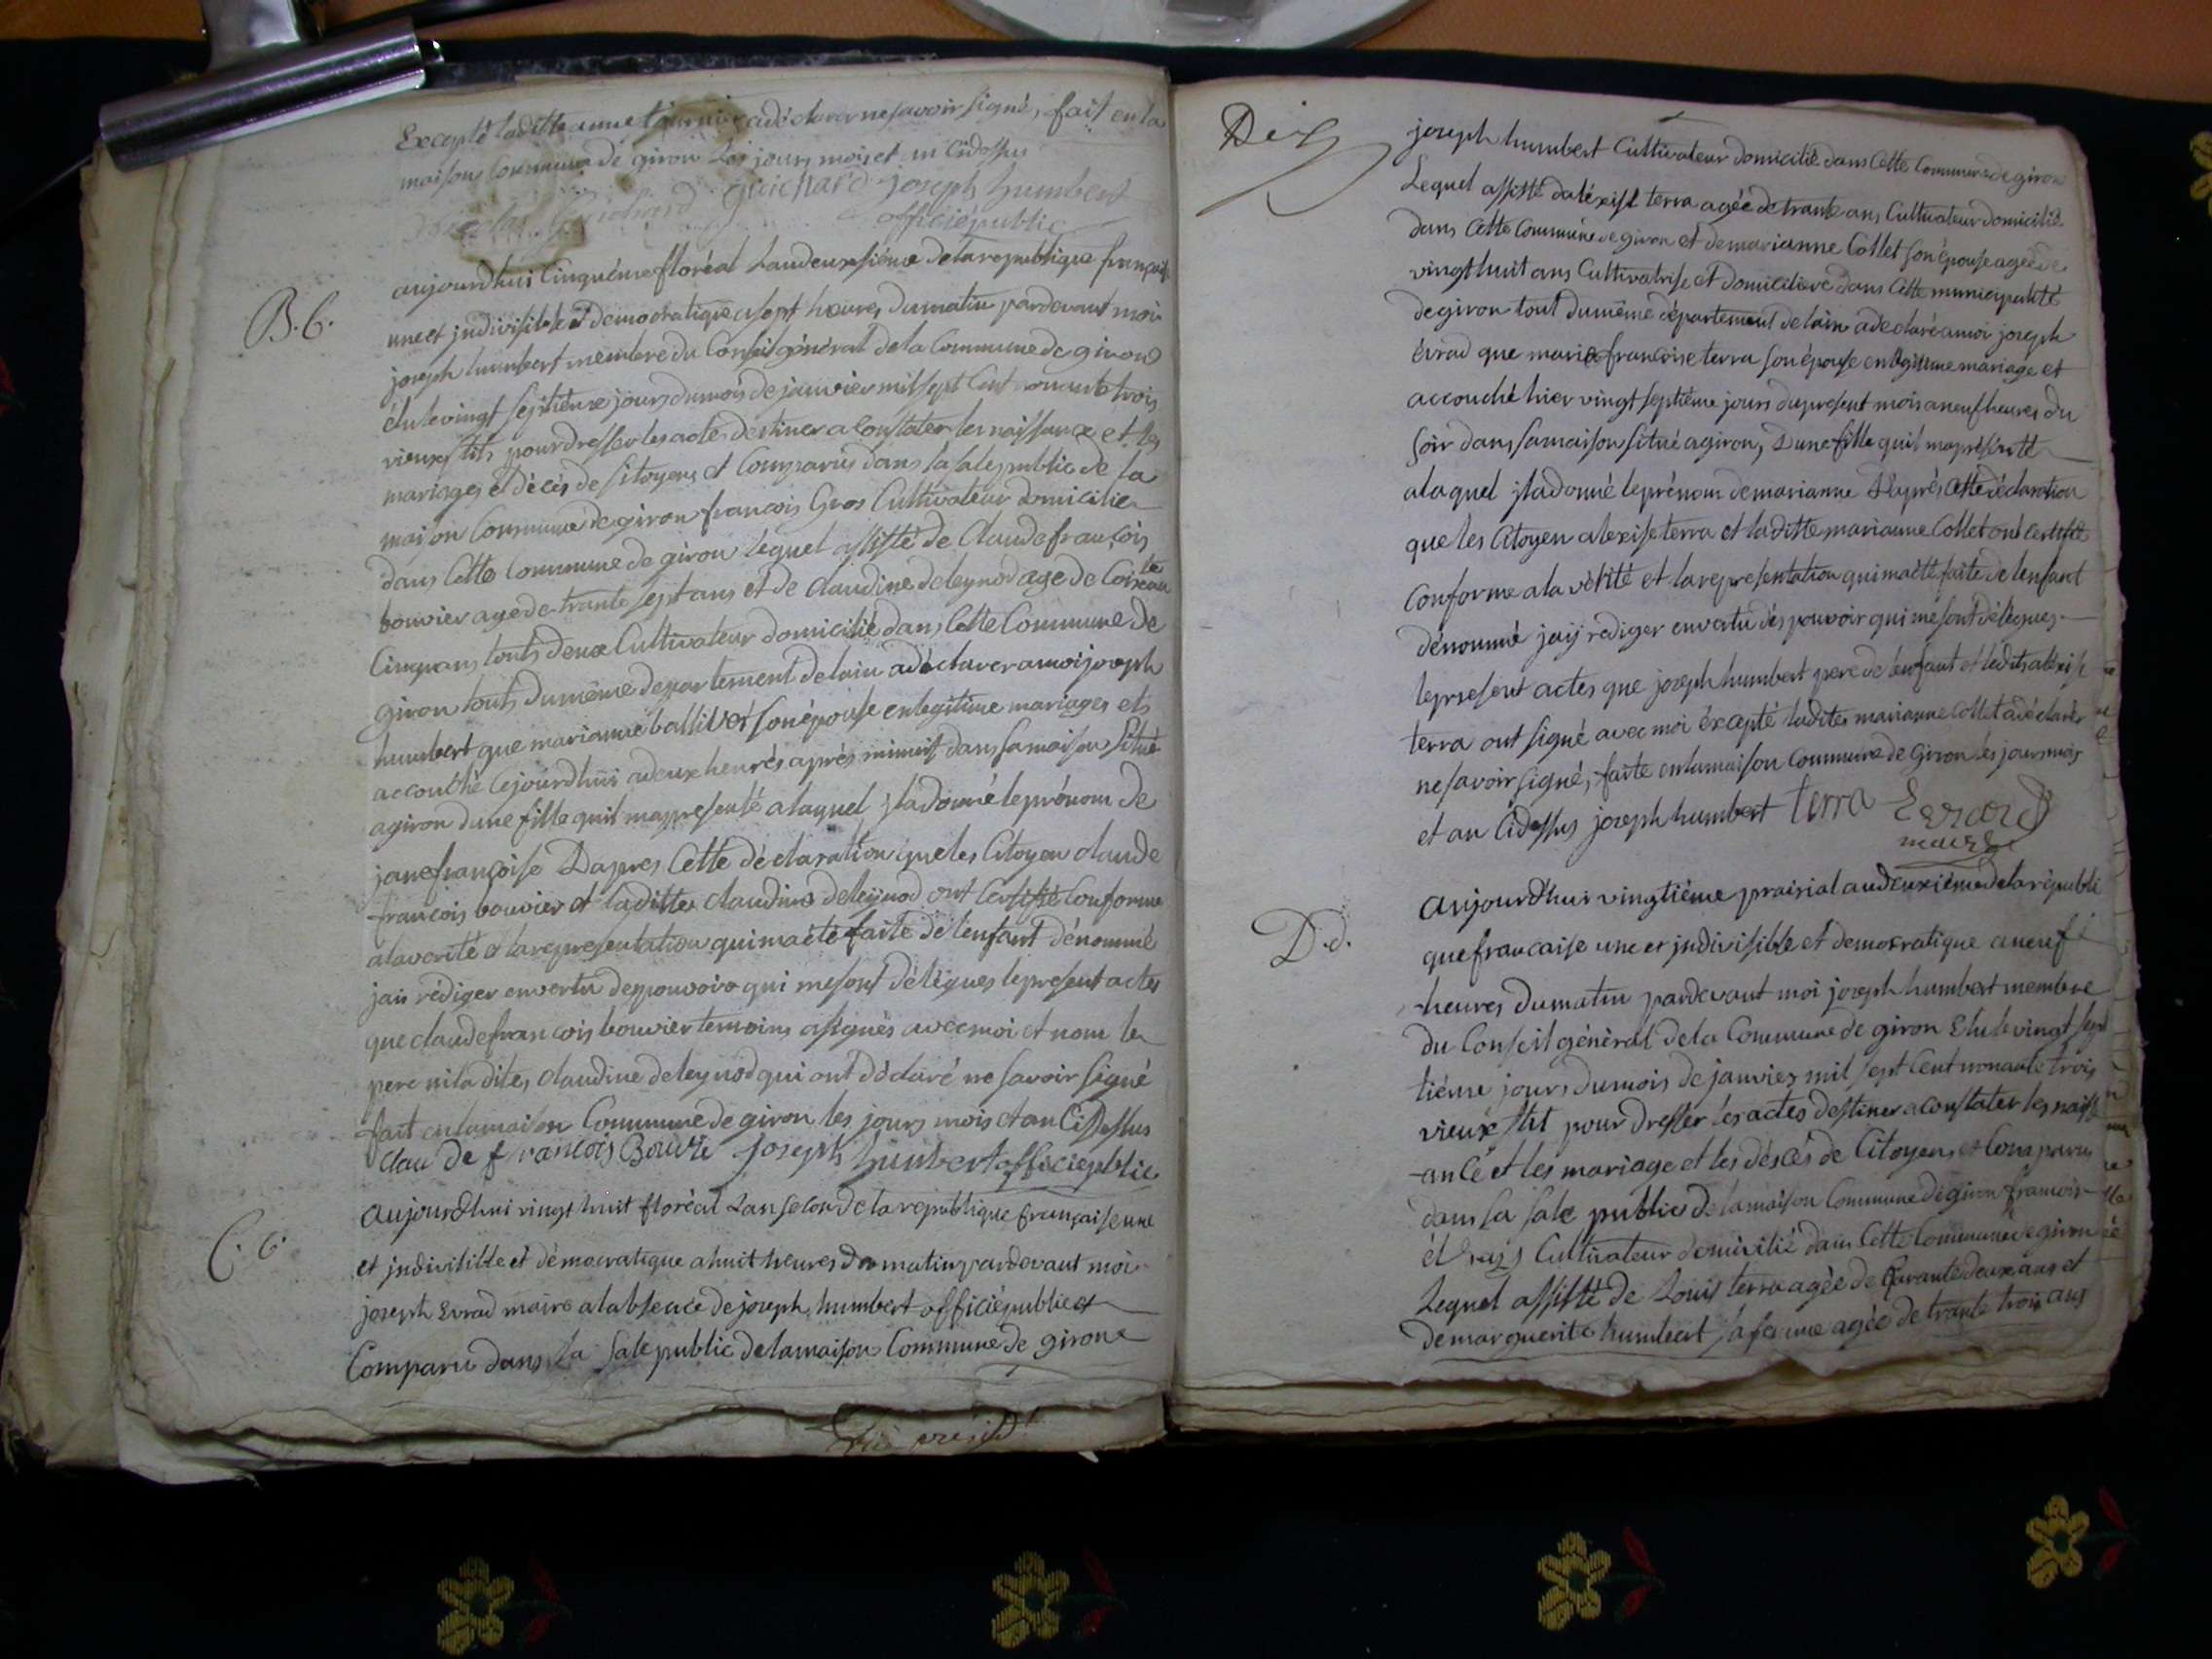 Excepté laditte anne tournier adéclarer ne savoir signé, fait en la
maisons commune de giron Les jours mois et an Cidessus
guichard joseph humbert
officié public
B.b.
aujourdhui Cinquéme floréal Landeuxsiéme delarepublique français
une et jndivisible et democratique a sept heures dumatin pardevant moi
joseph humbert membre du Conseil général dela Commune de giron
élu le vingt septiéme jours dumois de janvier mil sept Cent nonante trois
vieux stil, pour dresser les actes destiner a Constater les naissance et les
mariages et décés de Sitoyens et Comparus dans la sale public de la
maison Commune de giron francois Gros Cultivateur domicilier
dans Cette Commune de giron lequel assisté de Claude françois
bouvier age de trante sept ans et de claudine deleynod age de Soixante
Cinq ans touts deux Cultivateur domicilié dans Cette Commune de
giron touts dumême departement delain adéclarer amoi joseph
humbert que marianne ballivet son épouse en legitime mariages et
accouché Cejourdhui adeux heurés aprés minuit dans samaison situé
agiron dune fille quil ma presenté alaquel jladonné leprénom de
jane françoise Dapres Cette déclaration que les Citoyen claude
françois bouvier et laditte claudine deleynod ont Certifié Conforme
alaverité et larepresentation qui maété faite de lenfant dénommé
jais rédiger envertu des pouvoirs qui mesont délégues lepresent actes
que claude francois bouvier temoins asignés avec moi et nom le
pere nila dites claudine deleynod qui ont déclaré ne savoir signé
fait en lamaison Commune de giron les jours mois et an Cidessus
clau de francois Bouvie joseph humbert officié public
C.c.
Aujourdhui vingt huit floréal Lan second de la republique française une
et jndivisible et démocratique a huit heures du matin pardevant moi
joseph Evrad maire alabsence de joseph humbert officié public et
Comparu dans la sale public delamaison Commune de giron
Dix
joseph humbert Cultivateur domicilié dans Cette Commune de giron
Lequel assisté dalexise terra agée de trante ans Cultivateur domicilié
dans Cette Commune de giron et demarianne Collet son épouse agée de
vingt huit ans Cultivatrise et domiciliere dans Cette municipalité
de giron tout dumême département de lain adeclaré amoi joseph
évrad que marie francoise terra son épouse en légitime mariage et
accouché hier vingt septiéme jours dupresent mois aneuf heures du
soir dans samaison situé agiron, Dune fille quil mapresenté
alaquel jladonné leprénom demarianne Daprés Cette déclaration
que les Citoyen alexise terra et laditte marianne Collet ont certifié
Conforme ala vérité et larepresentation qui maété faite de lenfant
dénommé jaij rediger envertu dés pouvoir qui me sont délégues
lepresent actes que joseph humbert pere de lenfant et ledits aléxise
terra ont signé avec moi éxcepté ladites marianne Collet adéclarér
ne savoir signé, faite en lamaison Commune de Giron les jours mois
et an Cidessus joseph humbert terra Evrard
maire
D.d.
Aujourdhui vingtiéme prairial an deuxiéme dela républi
que francaise une et jndivisible et democratique a neuf
heures dumatin pardevant moi joseph humbert membre
du Conseil général dela Commune de giron Elu le vingt sept
tiéme jours dumois de janvier mil sept Cent nonante trois
vieux stit pour dresser les actes destiner a constater les naiss
ance et les mariage et les décés de Citoyens et Comparu
dans la sale public delamaison Commune de giron francois
évrad Cultivateur domicilié dans Cette Commune de giron
Lequel assisté de Louis terra agée de Carante deux ans et
de marguerite humbert sa femme agée de trante trois ans